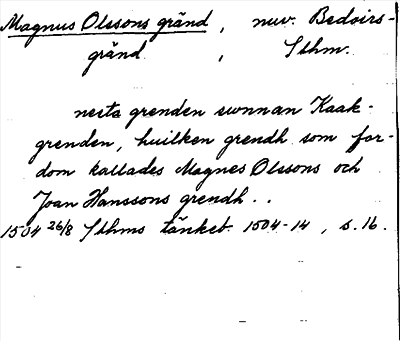 Magnus Olssons gränd, nuv. Bedoirs-
gränd, Sthm.
nesta grenden sunnan Kaak-
grenden, huilken grendh som for-
dom kallades Magnes Olssons och
Joan Hanssons grendh..
1504 26/8 Sthms tänkeb. 1504-14, s. 16.